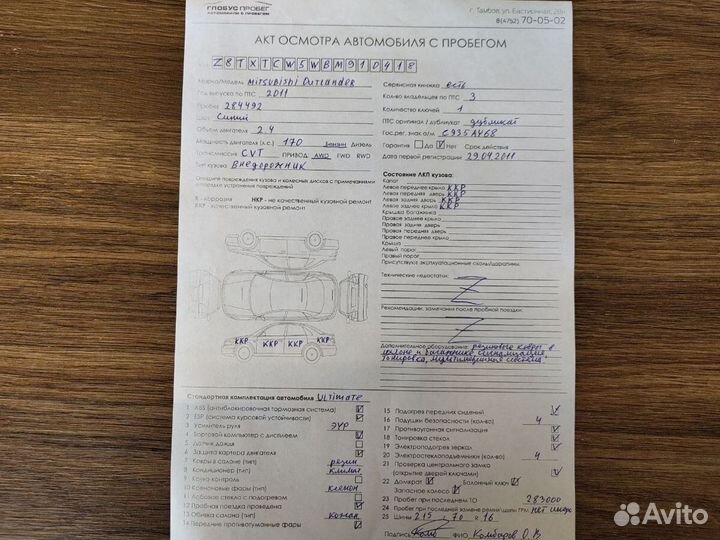 ГЛОБУС ПРОБЕГ
АВТОМОБИЛИ С ПРОБЕГОМ
г. Тамбов, ул. Бастионная,
8(4752) 70-05-02
АКТ ОСМОТРА АВТОМОБИЛЯ С ПРОБЕГОМ
Z8TXTCW5WBM910418
Марка/Модель Mitsubishi Outlander
Год выпуска по ПТС 2011
Пробег 284492
Цвет Синий
Объем двигателя 2.4
Мощность двигателя (л.с.) 170 Бензин Дизель
Трансмиссия CVT ПРИВОД AWD FWD RWD
Тип кузова Внедорожник
Сервисная книжка есть
Кол-во владельцев по ПТС 3
Количество ключей 1
ПТС оригинал / дубликат дубликат
Гос.рег. знак о/м С935АУ68
Гарантия Да Нет Срок действия
Дата первой регистрации 29.04.2011
Опишите повреждения кузова и колесных дисков с примечаниями
о порядке устранения повреждений
К - коррозия НКР - не качественный кузовной ремонт
ККР - качественный кузовной ремонт
Состояние ЛКП кузова:
Капот
Левое переднее крыло ККР
Левая передняя дверь ККР
Левая задняя дверь ККР
Левое заднее крыло ККР
Крышка багажника
Правое заднее крыло
Правая задняя дверь
Правая передняя дверь
Правое переднее крыло
Крыша
Левый порог
Правый порог
Присутствуют эксплуатационные сколы/царапины.
Технические недостатки:
Z
Рекомендации, замечания после пробной поездки:
Z
ККР ККР ККР ККР
Дополнительное оборудование: резиновые ковры в
салоне и багажнике сигнализация
тонировка, мультимедийная система
Стандартная комплектация автомобиля Ultimate
1 ABS (антиблокировочная тормозная система)
2 ESP (система курсовой устойчивости)
3 Усилитель руля ЭУР
4 Бортовой компьютер с дисплеем
5 Датчик дождя
6 Защита картера двигателя
7 Ковры в салоне (тип) резин
8 Кондиционер (тип) климат
9 Круиз контроль
10 Ксеноновые фары (тип) ксенон
11 Лобовое стекло с подогревом
12 Пробная поездка проведена
13 Обивка салона (тип) кожан
14 Передние противотуманные фары
15 Подогрев передних сидений
16 Подушки безопасности (кол-во) 4
17 Противоугонная сигнализация
18 Тонировка стекол
19 Электроподогрев зеркал
20 Электростеклоподъемники (кол-во) 4
21 Проверка центрального замка
(открытие дверей ключами)
22 Домкрат Балонный ключ
Запасное колесо
23 Пробег при последнем ТО 283000
24 Пробег при последней замене ремни/шипы ГРМ нет
25 Шины 215 / 70 R 16
Подпись ФИО Комбаров О.В
Avito